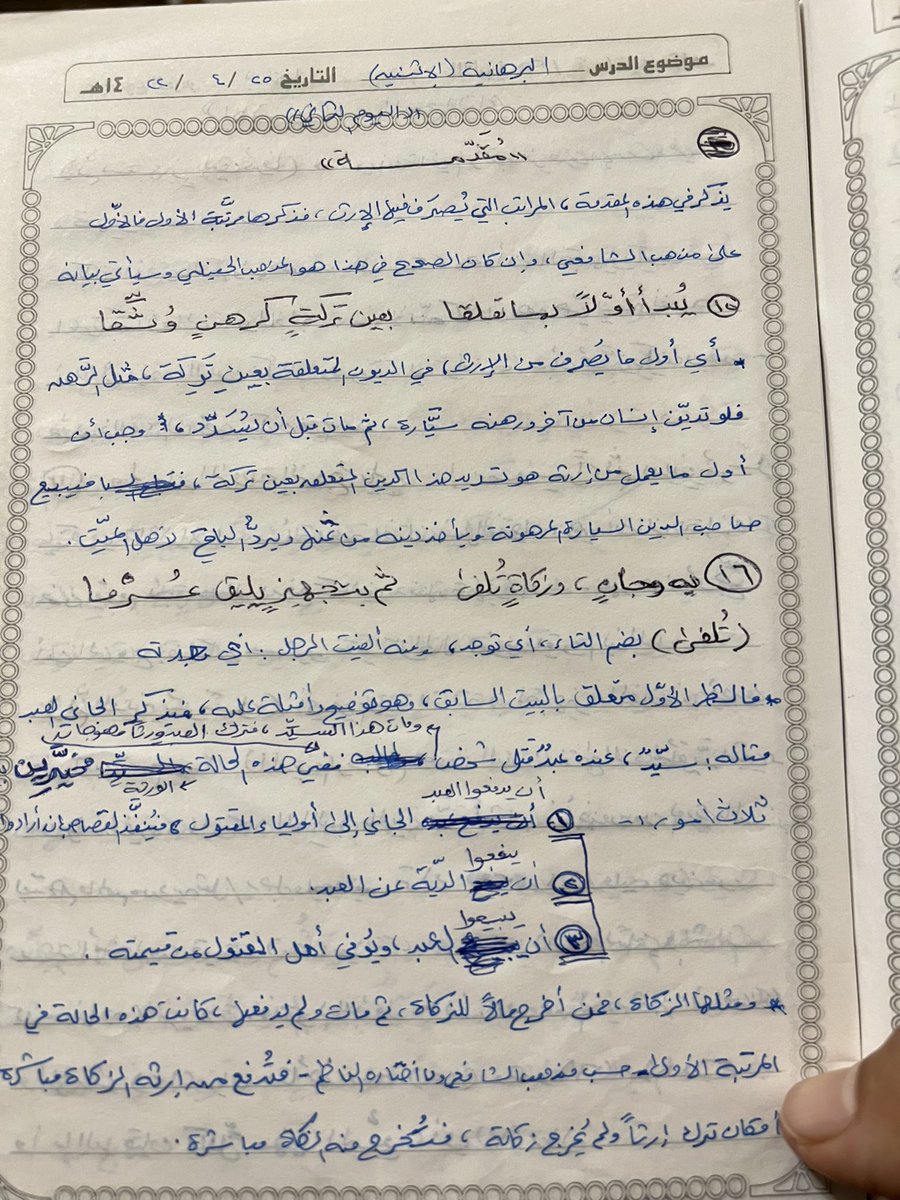 موضوع الدرس البرهانية (الإثنينية) التاريخ ٢٥ / ٤ / ٢٢ ١٤هـ
"اليوم الثاني"
"مُقَدِّمـــــــة"
يذكر في هذه المقدمة، المراتب التي يُصرف فيها الإرث، فذكرها مرتَّبة الأول فالأوّل
على مذهب الشافعي، وإن كان الصحيح في هذا هو المذهب الحنبلي وسيأتي بيانه
١٥ يُبدأ أوّلاً بما تعلقا بعين تركةٍ كرهنٍ وُثِّقا
* أي أول ما يُصرف من الإرث، في الديون المتعلقة بعين تَرِكَة، مثل الرَّهن
فلو تديّن إنسان من آخر ورهنه سيَّارة، ثم مات قبل أن يُسَدِّد، وجب أن
أول ما يعمل من إرثه هو تسديد هذا الدين المتعلقه بعين تركة، فيبيع
صاحب الدين السيارة المرهونة ويأخذ دينه من ثمنها ويردُّ الباقي لأهل الميِّت.
١٦ به وجانٍ، وزكاةٍ تُلفى ثم بتجهيزٍ يليق عُرْفا
(تُلفى) بضم التاء، أي توجد، ومنه ألفيت الرجل: أي وجدته
* فالشطر الأوّل متعلق بالبيت السابق، وهو توضيح وأمثلة عليه، فيذكر الجاني العبد
ومات هذا السيِّد، فترك العبد
مثاله: سيِّدٌ، عنده عبدٌ قتل شخصاً ففي هذه الحالة الورثة مخيَّرين
ثلاث أمور:-
١ أن يدفعوا العبد الجاني إلى أولياء المقتول، فيُنفَّذ القصاص إن أرادوا
٢ أن يدفعوا الديّة عن العبد.
٣ أن يبيعوا العبد، ويُوفي أهل المقتول من قيمته.
* ومثلها الزكاة، فمن أخرج مالاً للزكاة، ثم مات ولم يدفعها، كانت هذه الحالة في
المرتبة الأولى - حسب مذهب الشافعي وما اختاره الناظم - فتُدفع من إرثه الزكاة مباشرة
أو كان ترك إرثاً ولم يُخرج زكاته، فتُخرج منه الزكاة مباشرة.